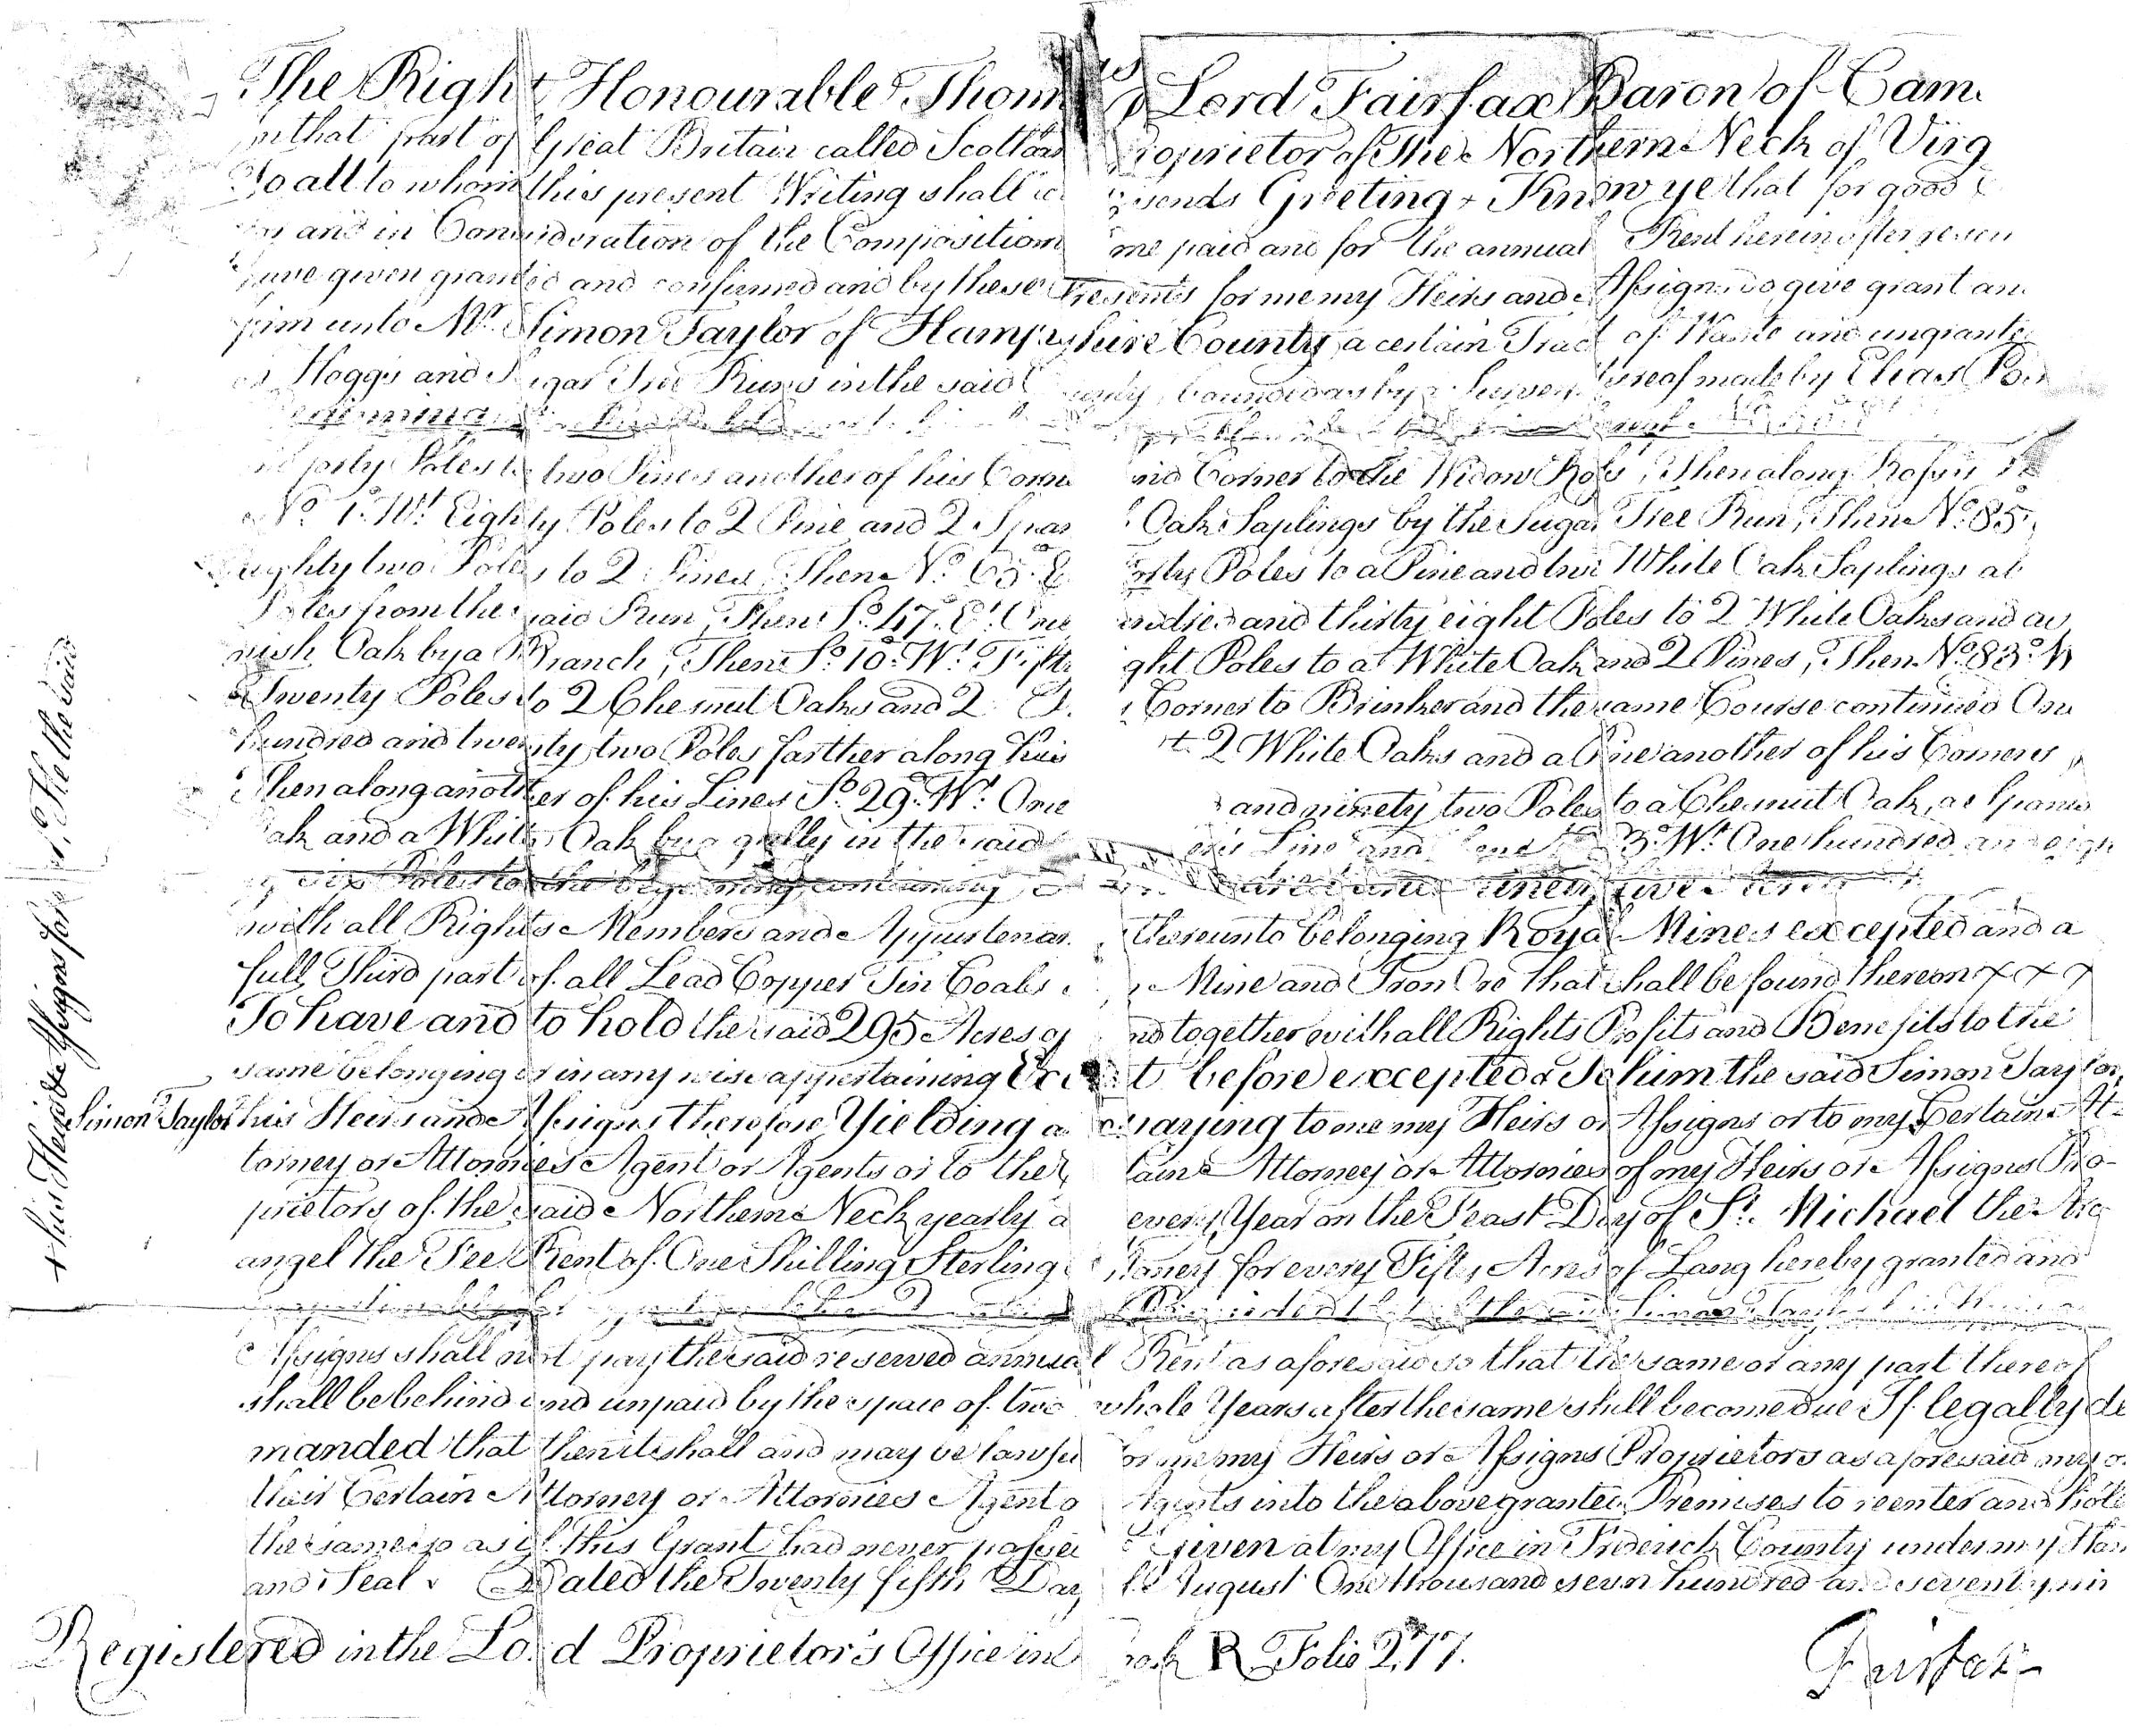 The Right Honourable Thomas Lord Fairfax Baron of Cam
in that part of Great Britain called Scotland Proprietor of the Northern Neck of Virg
To all to whom this present Writing shall co sends Greeting Know ye that for good
and in Consideration of the Composition me paid and for the annual Rent herein after
have given granted and confirmed and by these Presents for me my Heirs and Assigns do give grant an
firm unto Mr. Simon Taylor of Hampshire County a certain Tract of Waste and ungrante
on Hoggs and Sugar Tree Runs in the said County bounded as by a Survey thereof made by Elias Pos
forty Poles to two Pines another of his Corne and Corner to the Widow Ross, Then along Rosses
No. 1° Wt. Eighty Poles to 2 Pine and 2 Span Oak Saplings by the Sugar Tree Run, Then No. 85
Eighty two Poles to 2 Pines, Then No. 65 E Poles to a Pine and two White Oak Saplings at
Poles from the said Run, Then So. 47° Et. One undred and thirty eight Poles to 2 White Oaks and a
nish Oak by a Branch, Then So. 10° Wt. Fifty ght Poles to a White Oak and 2 Pines, Then No. 83° W
Twenty Poles to 2 Chesnut Oaks and 2 P Corner to Brinker and the same Course continued One
hundred and twenty two Poles farther along his 2 White Oaks and a Pine another of his Corners
Then along another of his Lines So. 29° Wt. One and ninety two Poles to a Chesnut Oak, a Spanis
Oak and a White Oak by a gully in the said Line and 3° Wt. One hundred and eigh
ty six Poles to the beginning containing and ninety five Acres
with all Rights Members and Appurtenan thereunto belonging Royal Mines excepted and a
full Third part of all Lead Copper Tin Coals Mine and Iron Ore that shall be found thereon x x x
To have and to hold the said 295 Acres of nd together with all Rights Profits and Benefits to the
same belonging or in any wise appertaining Except before excepted To him the said Simon Taylor,
Simon Taylor his Heirs and Assigns therefore Yielding a paying to me my Heirs or Assigns or to my Certain At-
torney or Attornies Agent or Agents or to the tain Attorney or Attornies of my Heirs or Assigns Pro-
prietors of the said Northern Neck yearly a every Year on the Feast Day of St. Michael the Arc
angel the Fee Rent of One Shilling Sterling Money for every Fifty Acres of Lang hereby granted and
Provided that the said Simon Taylor
Assigns shall not pay the said reserved annual Rent as aforesaid so that the same or any part thereof
shall be behind and unpaid by the space of two whole Years after the same shall become due If legally de
manded that then it shall and may be lawfu for me my Heirs or Assigns Proprietors as aforesaid my or
their Certain Attorney or Attornies Agent o Agents into the above granted Premises to reenter and hold
the same so as if this Grant had never passed Given at my Office in Frederick County under my Han
and Seal Dated the Twenty fifth Day of August One thousand seven hundred and seventy nin
Registered in the Lord Proprietor's Office in Book R Folio 277.
Fairfax
+ his Heirs & Assigns for
To the said